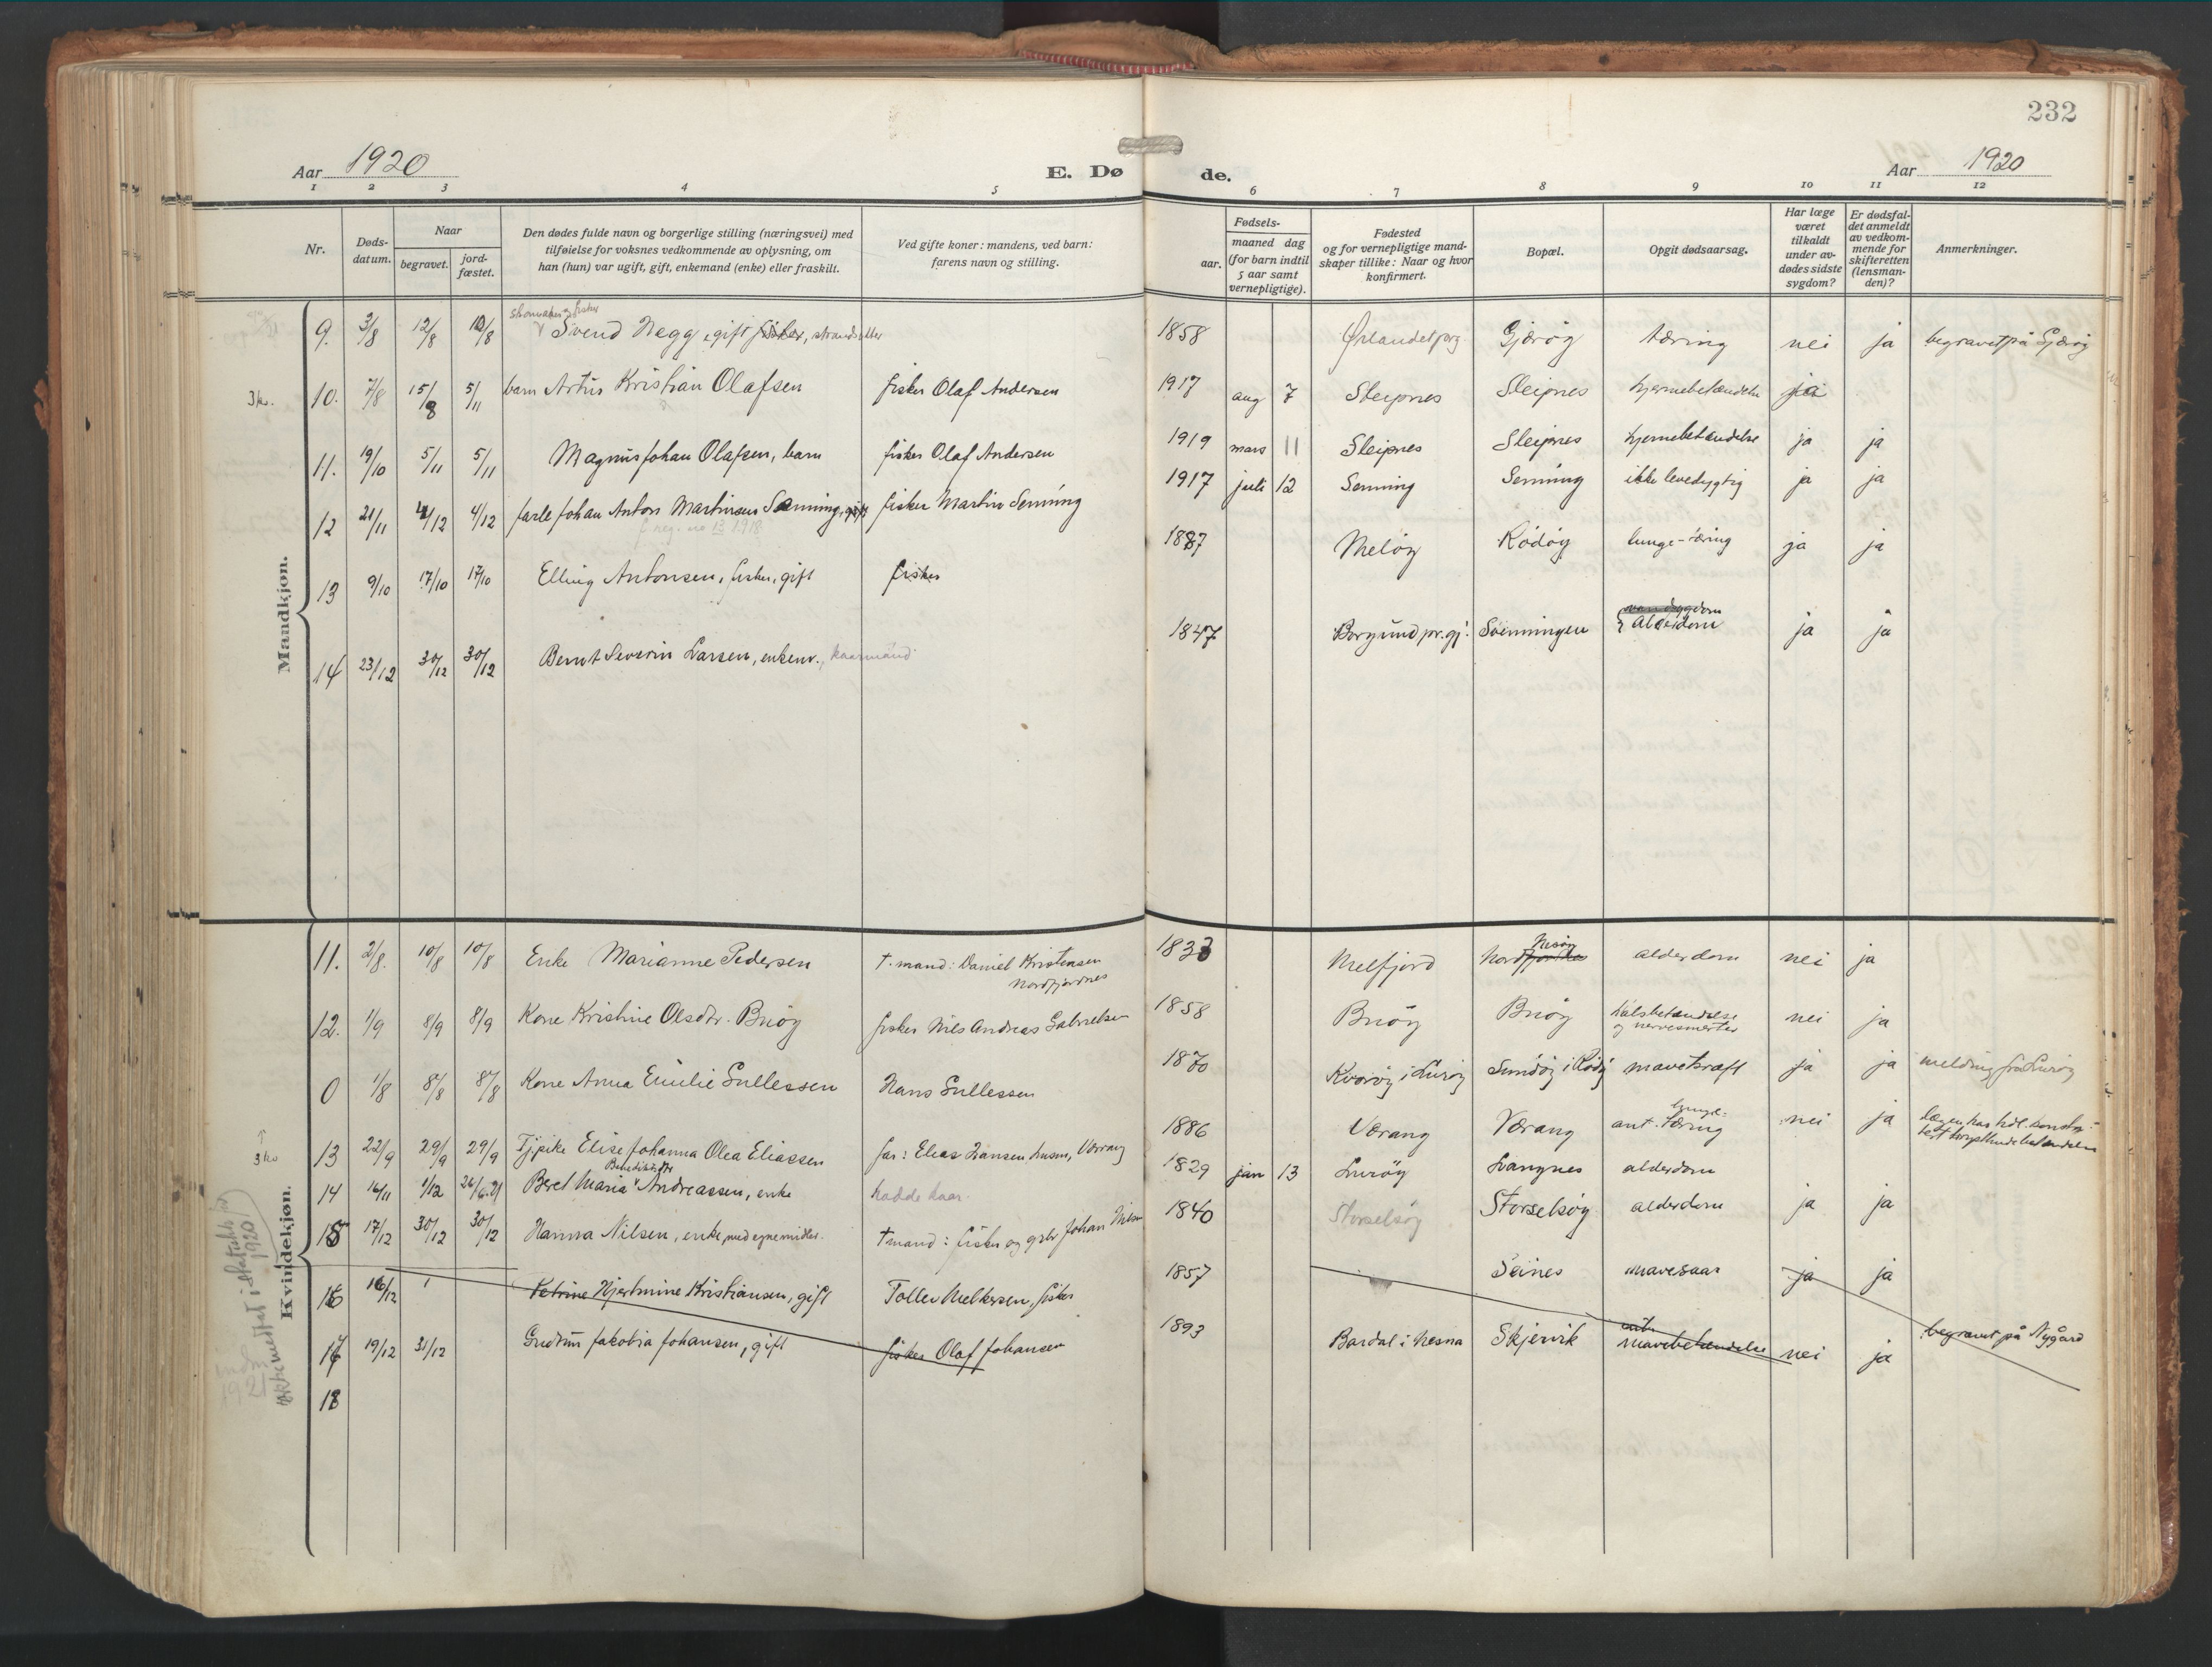 232
Aar 1920
E. Dø
de.
Aar 1920
1 2 3 4 5 6 7 8 9 10 11 12
Nr.
Døds-
datum.
Naar
begravet.
jord-
fæstet.
Den dødes fulde navn og borgerlige stilling (næringsvei) med
tilføielse for voksnes vedkommende av oplysning, om
han (hun) var ugift, gift, enkemand (enke) eller fraskilt.
Ved gifte koner: mandens, ved barn:
farens navn og stilling.
Fødsels-
aar.
maaned dag
(for barn indtil
5 aar samt
vernepligtige).
Fødested
og for vernepligtige mand-
skaper tillike: Naar og hvor
konfirmert.
Bopæl.
Opgit dødsaarsag.
Har læge
været
tilkaldt
under av-
dødes sidste
sygdom?
Er dødsfal-
det anmeldt
av vedkom-
mende for
skifteretten
(lensman-
den)?
Anmerkninger.
Mandkjøn.
9. 3/8 12/8 10/8 Svend Hegg, gift fisker, strandsitter 1858 Ørlandet prg. Gjærøy tæring nei ja begravet på Gjærøy
3 kv.
10. 7/8 15/8 5/11 barn Artur Kristian Olafsen fisker Olaf Andersen 1917 aug 7 Sleipnes Sleipnes hjernebetændelse
11. 19/10 5/11 5/11 Magnus Johan Olafsen, barn fisker Olaf Andersen 1919 mars 11 Sleipnes Sleipnes hjernebetændelse ja ja
12 21/11 4/12 4/12 Jarle Johan Anton Martinsen Sænning, gift fisker Martin Senning 1917 juli 12 Senning Senning ikke levedygtig ja ja
f. reg. no 13 1918
13 9/10 17/10 17/10 Elling Antonsen, fisker, gift fisker 1887 Meløy Rödöy lunge-tæring ja ja
14 23/12 30/12 30/12 Bernt Severin Larsen, enkem., kaarmand 1847 Borgund pr.gj. Svenningen Alderdom ja ja
Kvindekjøn.
11. 2/8. 10/8 10/8 Enke Marianne Pedersen †. mand: Daniel Kristensen
Nordfjordnes
1833 Melfjord Nesøy alderdom nei ja
12. 1/9 8/9 8/9 Kone Kristine Olsdtr. Buöy fisker Nils Andreas Gabrielsen 1858 Buöy Buöy Halsbetændelse
og nervesmerter nei ja
0 1/8 8/8 8/8 Kone Anna Emilie Gullessen Hans Gullessen 1870 Kvaröy i Luröy Sundöy i Rödöy mavekræft ja ja melding fra Luröy
3 kv
13 22/9 29/9 29/9 Tj.pike Elise Johanna Olea Eliassen far: Elias Hansen husm, Værang 1886 Værang Værang ant. lunge-tæring nei ja
14 16/11 1/12 26/6.21 Beret Maria Benediktsdtr Andreassen, enke hadde kaar. 1829 jan 13 Luröy Langnes alderdom
15 17/12 30/12 30/12 Hanna Nilsen, enke, med egne midler. † mand: fisker og gbr Johan Nilsen 1840 Storselsöy Storselsöy alderdom ja ja
16 16/12 Petrine Hjertmine Kristiansen, gift Tollev Melkersen, fisker 1857 Seines mavesaar ja ja
17 19/12 31/12 Gudrun Jakobia Johansen, gift fisker Olaf Johansen 1893 Bardal i Nesna Skjervik mavebetændelse nei ja begravet på Nygård
18